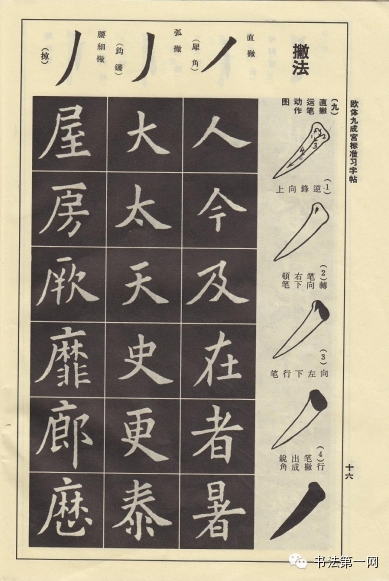 欧体九成宮标准习字帖
十六
撇法
(九)
直撇
运笔
动作
图
(1)
逆鋒向上
(2)
轉笔向右下頓笔
(3)
向左下行笔
(4)
行笔撇出成銳角
直撇
(犀角)
弧撇
(鈎鐮)
腰細撇
(掠)
人今及在者暑
大太天史更泰
屋房厥靡廊
书法第一网